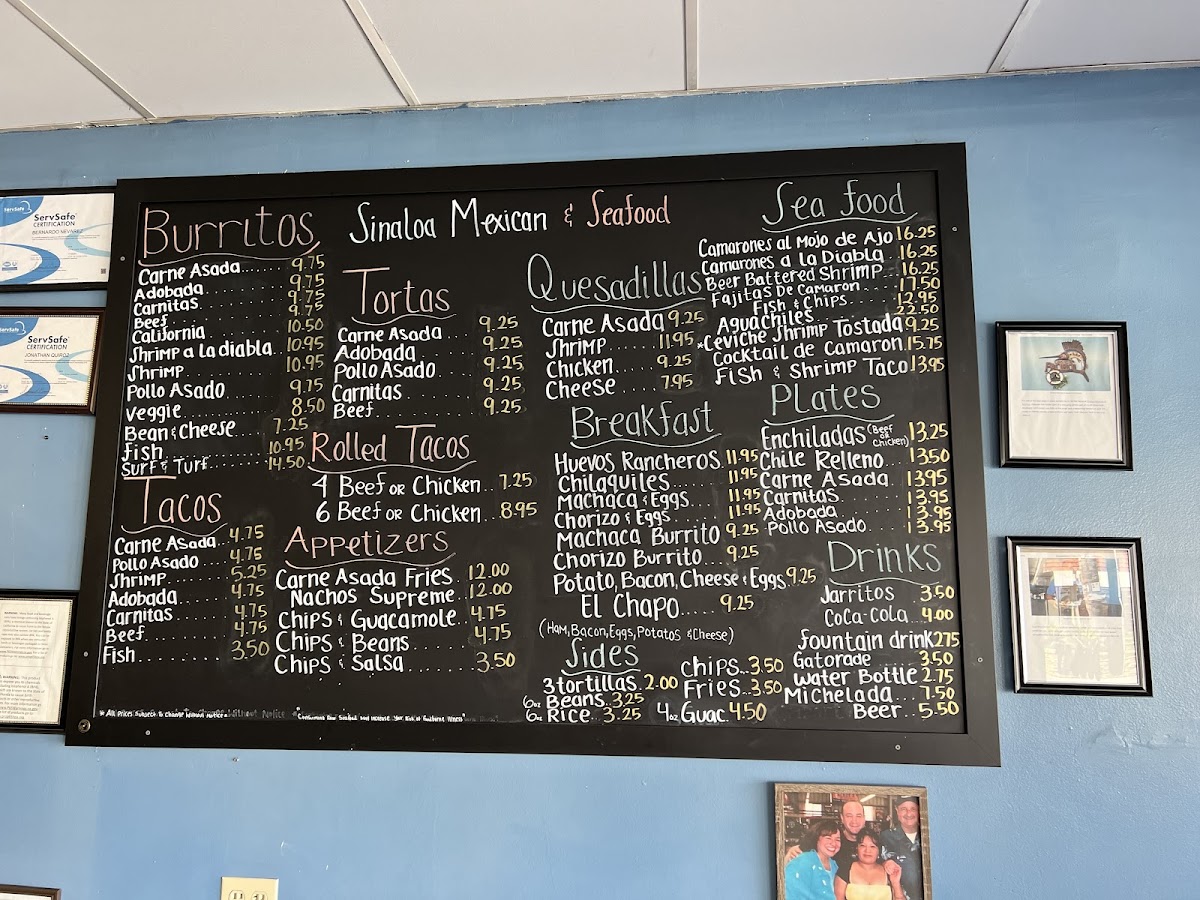 ServSafe
CERTIFICATION
BERNARDO NEVAREZ
ServSafe
CERTIFICATION
JONATHAN QUIROZ
Sinaloa Mexican & Seafood
Burritos
Carne Asada...... 9.75
Adobada 9.75
Carnitas 9.75
Beef 9.75
California 10.50
Shrimp a la diabla.. 10.95
Shrimp 10.95
Pollo Asado 9.75
Veggie 8.50
Bean & Cheese.... 7.25
Fish 10.95
Surf & Turf 14.50
Tacos
Carne Asada.. 4.75
Pollo Asado 4.75
Shrimp 5.25
Adobada 4.75
Carnitas 4.75
Beef 4.75
Fish 3.50
Tortas
Carne Asada 9.25
Adobada 9.25
Pollo Asado 9.25
Carnitas 9.25
Beef 9.25
Rolled Tacos
4 Beef or Chicken.. 7.25
6 Beef or Chicken.. 8.95
Appetizers
Carne Asada Fries 12.00
Nachos Supreme.. 12.00
Chips & Guacamole.. 4.75
Chips & Beans 4.75
Chips & Salsa 3.50
Quesadillas
Carne Asada 9.25
Shrimp 11.95
Chicken 9.25
Cheese 7.95
Breakfast
Huevos Rancheros. 11.95
Chilaquiles 11.95
Machaca & Eggs 11.95
Chorizo & Eggs 11.95
Machaca Burrito 9.25
Chorizo Burrito... 9.25
Potato, Bacon, Cheese & Eggs 9.25
El Chapo.... 9.25
(Ham, Bacon, Eggs, Potatos & Cheese)
Sides
3 tortillas. 2.00
6oz Beans. 3.25
6oz Rice.. 3.25
Chips.. 3.50
Fries.. 3.50
4oz Guac. 4.50
Sea food
Camarones al Mojo de Ajo 16.25
Camarones a la Diabla 16.25
Beer Battered Shrimp 16.25
Fajitas De Camaron 17.50
Fish & Chips 12.95
Aguachiles 22.50
*Ceviche Shrimp Tostada 9.25
Cocktail de Camaron. 15.75
Fish & Shrimp Taco 13.95
Plates
Enchiladas (Beef or Chicken) 13.25
Chile Relleno 13.50
Carne Asada 13.95
Carnitas 13.95
Adobada 13.95
Pollo Asado 13.95
Drinks
Jarritos 3.50
Coca-Cola 4.00
fountain drink 2.75
Gatorade 3.50
Water Bottle 2.75
Michelada 7.50
Beer.. 5.50
* All Prices Subject to Change Without Notice